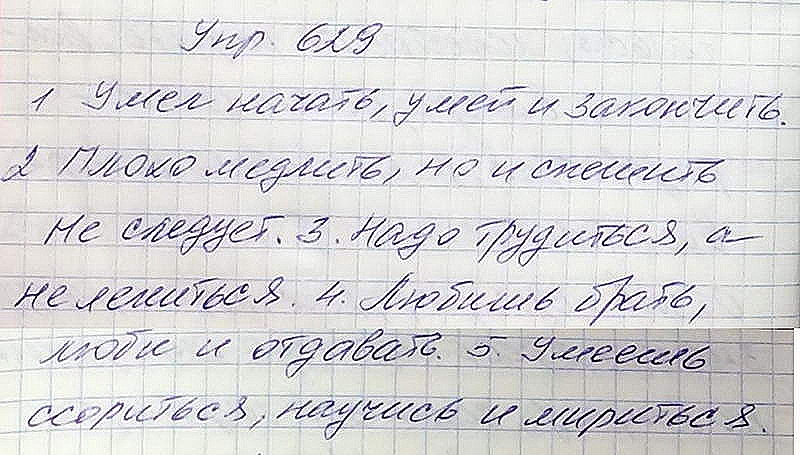 Упр. 629
1 Умел начать, умей и закончить.
2 Плохо медлить, но и спешить
не следует. 3. Надо трудиться, а
не лениться. 4. Любишь брать,
люби и отдавать. 5. Умеешь
ссориться, научись и мириться.